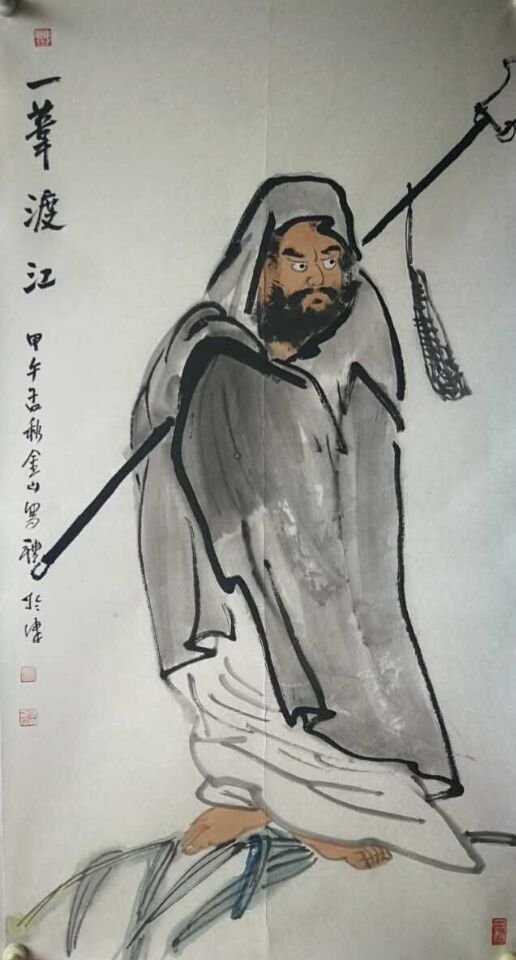 一葦渡江
甲午孟秋金山写禮於津